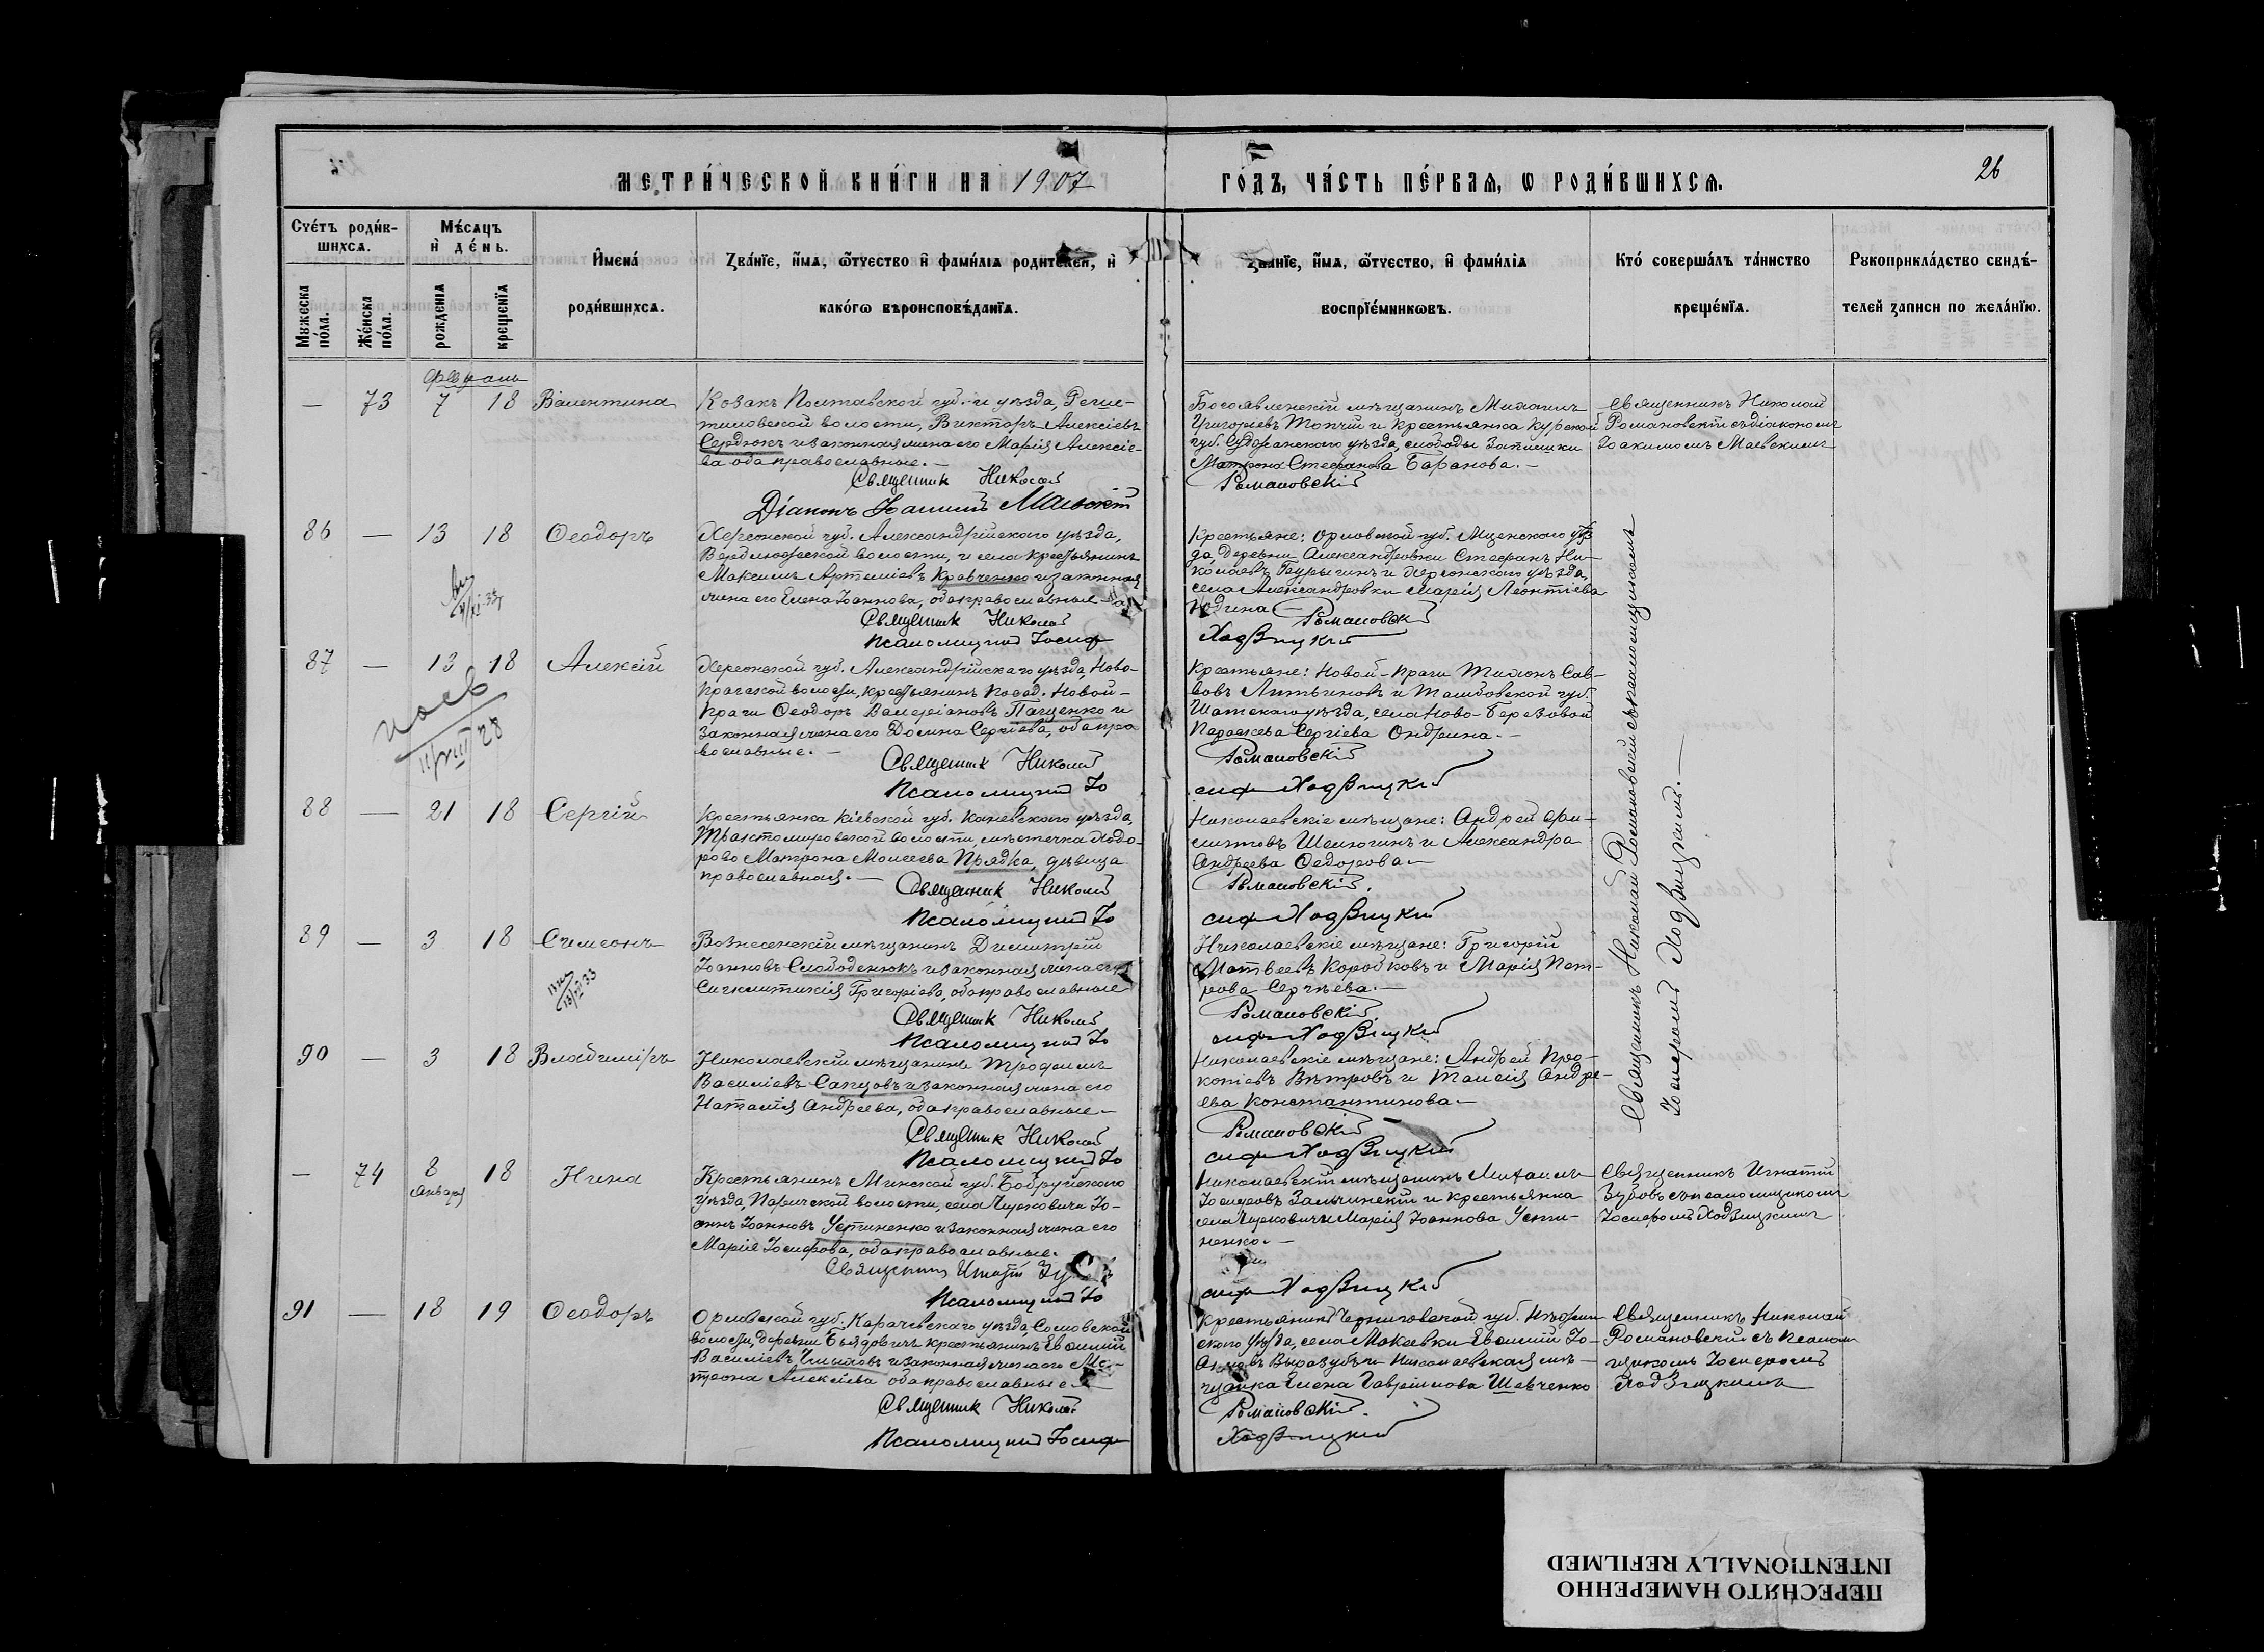 МЕТРИ́ЧЕСКОЙ КНИ́ГИ НА 1907
ГО́ДЪ, ЧА́СТЬ ПЕ́РВАЯ, Ѡ РОДИ́ВШИХСѦ.
26
Сче́тъ роди́в-
шихсѧ.
Мѣ́сѧцъ
и҆ де́нь.
И҆мена́
роди́вшихсѧ.
Зва́нїе, и҆́мѧ, ѻ҆́тчество и҆ фами́лїа роди́телей, и҆
како́гѡ вѣроисповѣ́данїѧ.
Зва́нїе, и҆́мѧ, ѻ҆́тчество, и҆ фами́лїа
воспрїе́мникѡвъ.
Кто́ соверша́лъ та́инство
креще́нїѧ.
Рꙋкоприкла́дство свидѣ́-
телей записи по жела́нїю.
Мꙋжеска по́ла.
Же́нска по́ла.
рожденїѧ
крещенїѧ
Февраль
— 73 7 18 Валентина
Козакъ Полтавской губ. и уѣзда, Реше-
тиловской волости, Викторъ Алексіевъ
Сердюкъ и законная жена его Марія Алексіе-
ва оба православные. —
Священник Николай
Діаконъ Іоакимъ Маевскій
Богоявленскій мѣщанинъ Михаилъ
Григоріевъ Топчій и крестьянка Курской
губ. Суджанскаго уѣзда, слободы
Матрона Стефанова Баранова. —
Романовскій
Священникъ Николай
Романовскій съ діакономъ
Іоакимомъ Маевскимъ
86 — 13 18 Ѳеодоръ
Херсонской губ. Александрійскаго уѣзда,
Верблюжской волости, и села крестьянинъ
Максимъ Артеміевъ Кравченко и законная
жена его Елена Іоаннова, оба православные
Священник Николай
Псаломщикъ Іосиф
Крестьяне: Орловской губ. Мценскаго уѣз
да, деревни Александровки Стефанъ Ни-
колаевъ и Херсонскаго уѣзда,
села Александровки Марія Леонтіева
Романовскій
Ходзицкій
87 — 13 18 Алексій
Херсонской губ. Александрійскаго уѣзда, Ново-
Прагской волости, крестьянинъ посад. Новой-
Праги Ѳеодоръ Валеріановъ Пащенко и
законная жена его Домна Сергіева, оба пра
вославные. —
Священник Николай
Псаломщикъ Іо
Крестьяне: Новой-Праги Тихонъ Сав-
вовъ Литвиновъ и Тамбовской губ.
Шатскаго уѣзда, села Ново-Березовой
Параскева Сергіева Ондрина. —
Романовскій
сиф Ходзицкій
11/VIII 28
88 — 21 18 Сергій
Крестьянка Кіевской губ. Каневскаго уѣзда,
Трактомировской волости, мѣстечка Ходо-
рово Матрона Моисеева Прядка, дѣвица
православная. —
Священник Николай
Псаломщикъ Іо
Николаевскіе мѣщане: Андрей Фи-
липповъ и Александра
Андреева Ѳедорова —
Романовскій.
сиф Ходзицкій
89 — 3 18 Симеонъ
Вознесенскій мѣщанинъ Димитрій
Іоанновъ Слободенюкъ и законная жена его
Синклитикія Григоріева, оба православные
Священник Николай
Псаломщикъ Іо
Николаевскіе мѣщане: Григорій
Матвеевъ Коробковъ и Марія Пет-
рова Сергѣева. —
Романовскій
сиф Ходзицкій
90 — 3 18 Владиміръ
Николаевскій мѣщанинъ Трофимъ
Василіевъ Сапцовъ и законная жена его
Наталія Андреева, оба православные —
Священник Николай
Псаломщикъ Іо
Николаевскіе мѣщане: Андрей Про-
копіевъ Вѣтровъ и Таисія Андре-
ева Константинова —
Романовскій
сиф Ходзицкій
Священникъ Николай Романовскій съ псаломщикомъ
Іосифомъ Ходзицкимъ. —
— 74 8 января 18 Нина
Крестьянинъ Минской губ. Бобруйскаго
уѣзда, Паричской волости, села Чирковичи Іо-
аннъ Іоанновъ Устиненко и законная жена его
Марія Іосифова, оба православные.
Священник Игнатій
Псаломщикъ Іо
Николаевскій мѣщанинъ Михаилъ
Іосифовъ Зальчинскій и крестьянка
села Чирковичи Марія Іоаннова Усти-
ненко. —
сиф Ходзицкій
Священникъ Игнатій
Зубовъ съ псаломщикомъ
Іосифомъ Ходзицкимъ
91 — 18 19 Ѳеодоръ
Орловской губ. Карачевскаго уѣзда, Сомовской
волости, деревни крестьянинъ Евѳимій
Василіевъ и законная жена его Ма-
трона Алексіева оба православные
Священник Николай
Псаломщикъ Іосиф
Крестьянинъ Черниговской губ. Нѣжин
скаго уѣзда, села Макеевки Евѳимій Іо-
анновъ Вырвзубъ и Николаевская мѣ-
щанка Елена Гавріилова Шевченко
Романовскій.
Ходзицкій
Священникъ Николай
Романовскій съ псалом
щикомъ Іосифомъ
Ходзицкимъ
ПЕРЕСНЯТО НАМЕРЕННО
INTENTIONALLY REFILMED